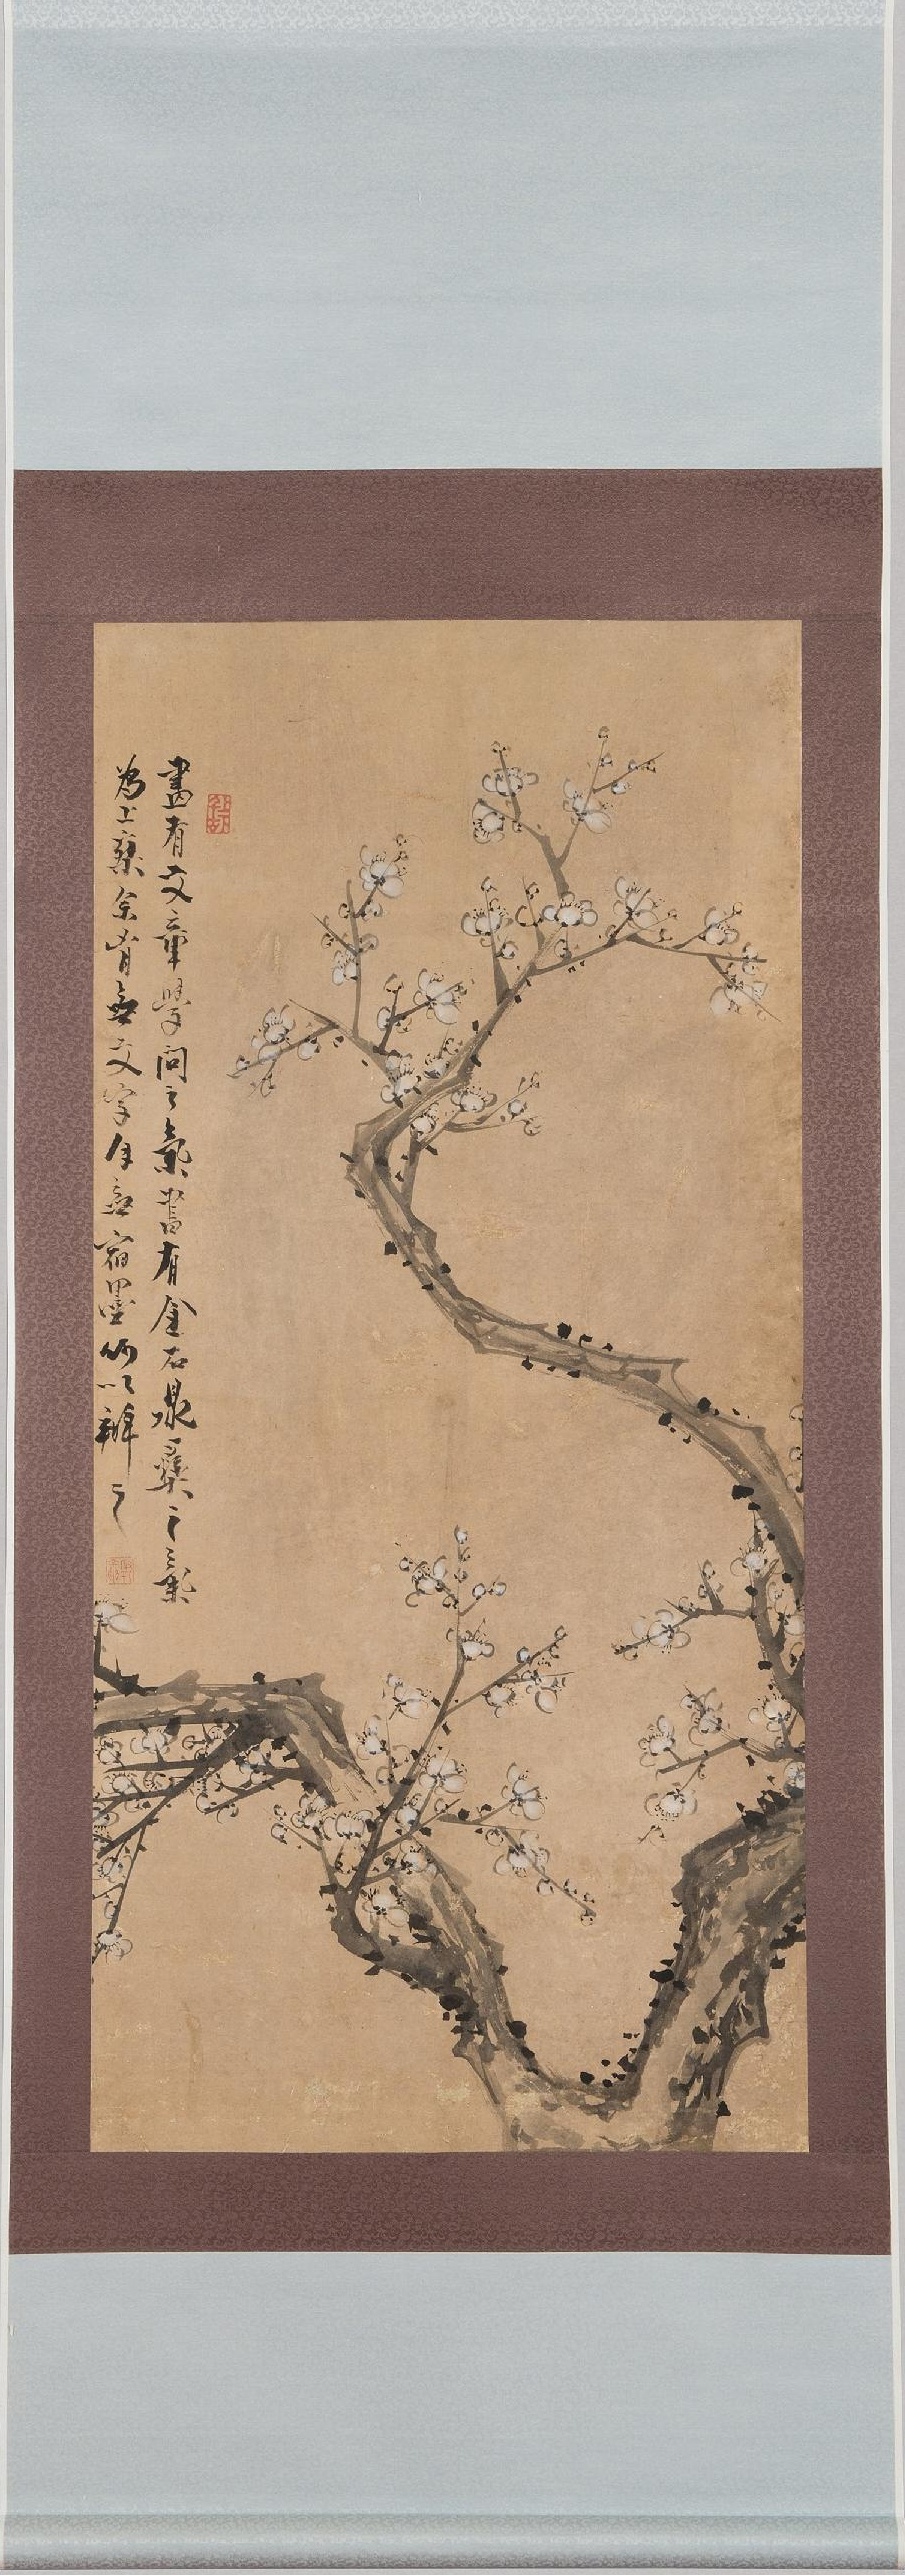 畫有文章學問之氣書有金石鼎彝之氣
為上乘余胷無文字目無宿墨何以辦之